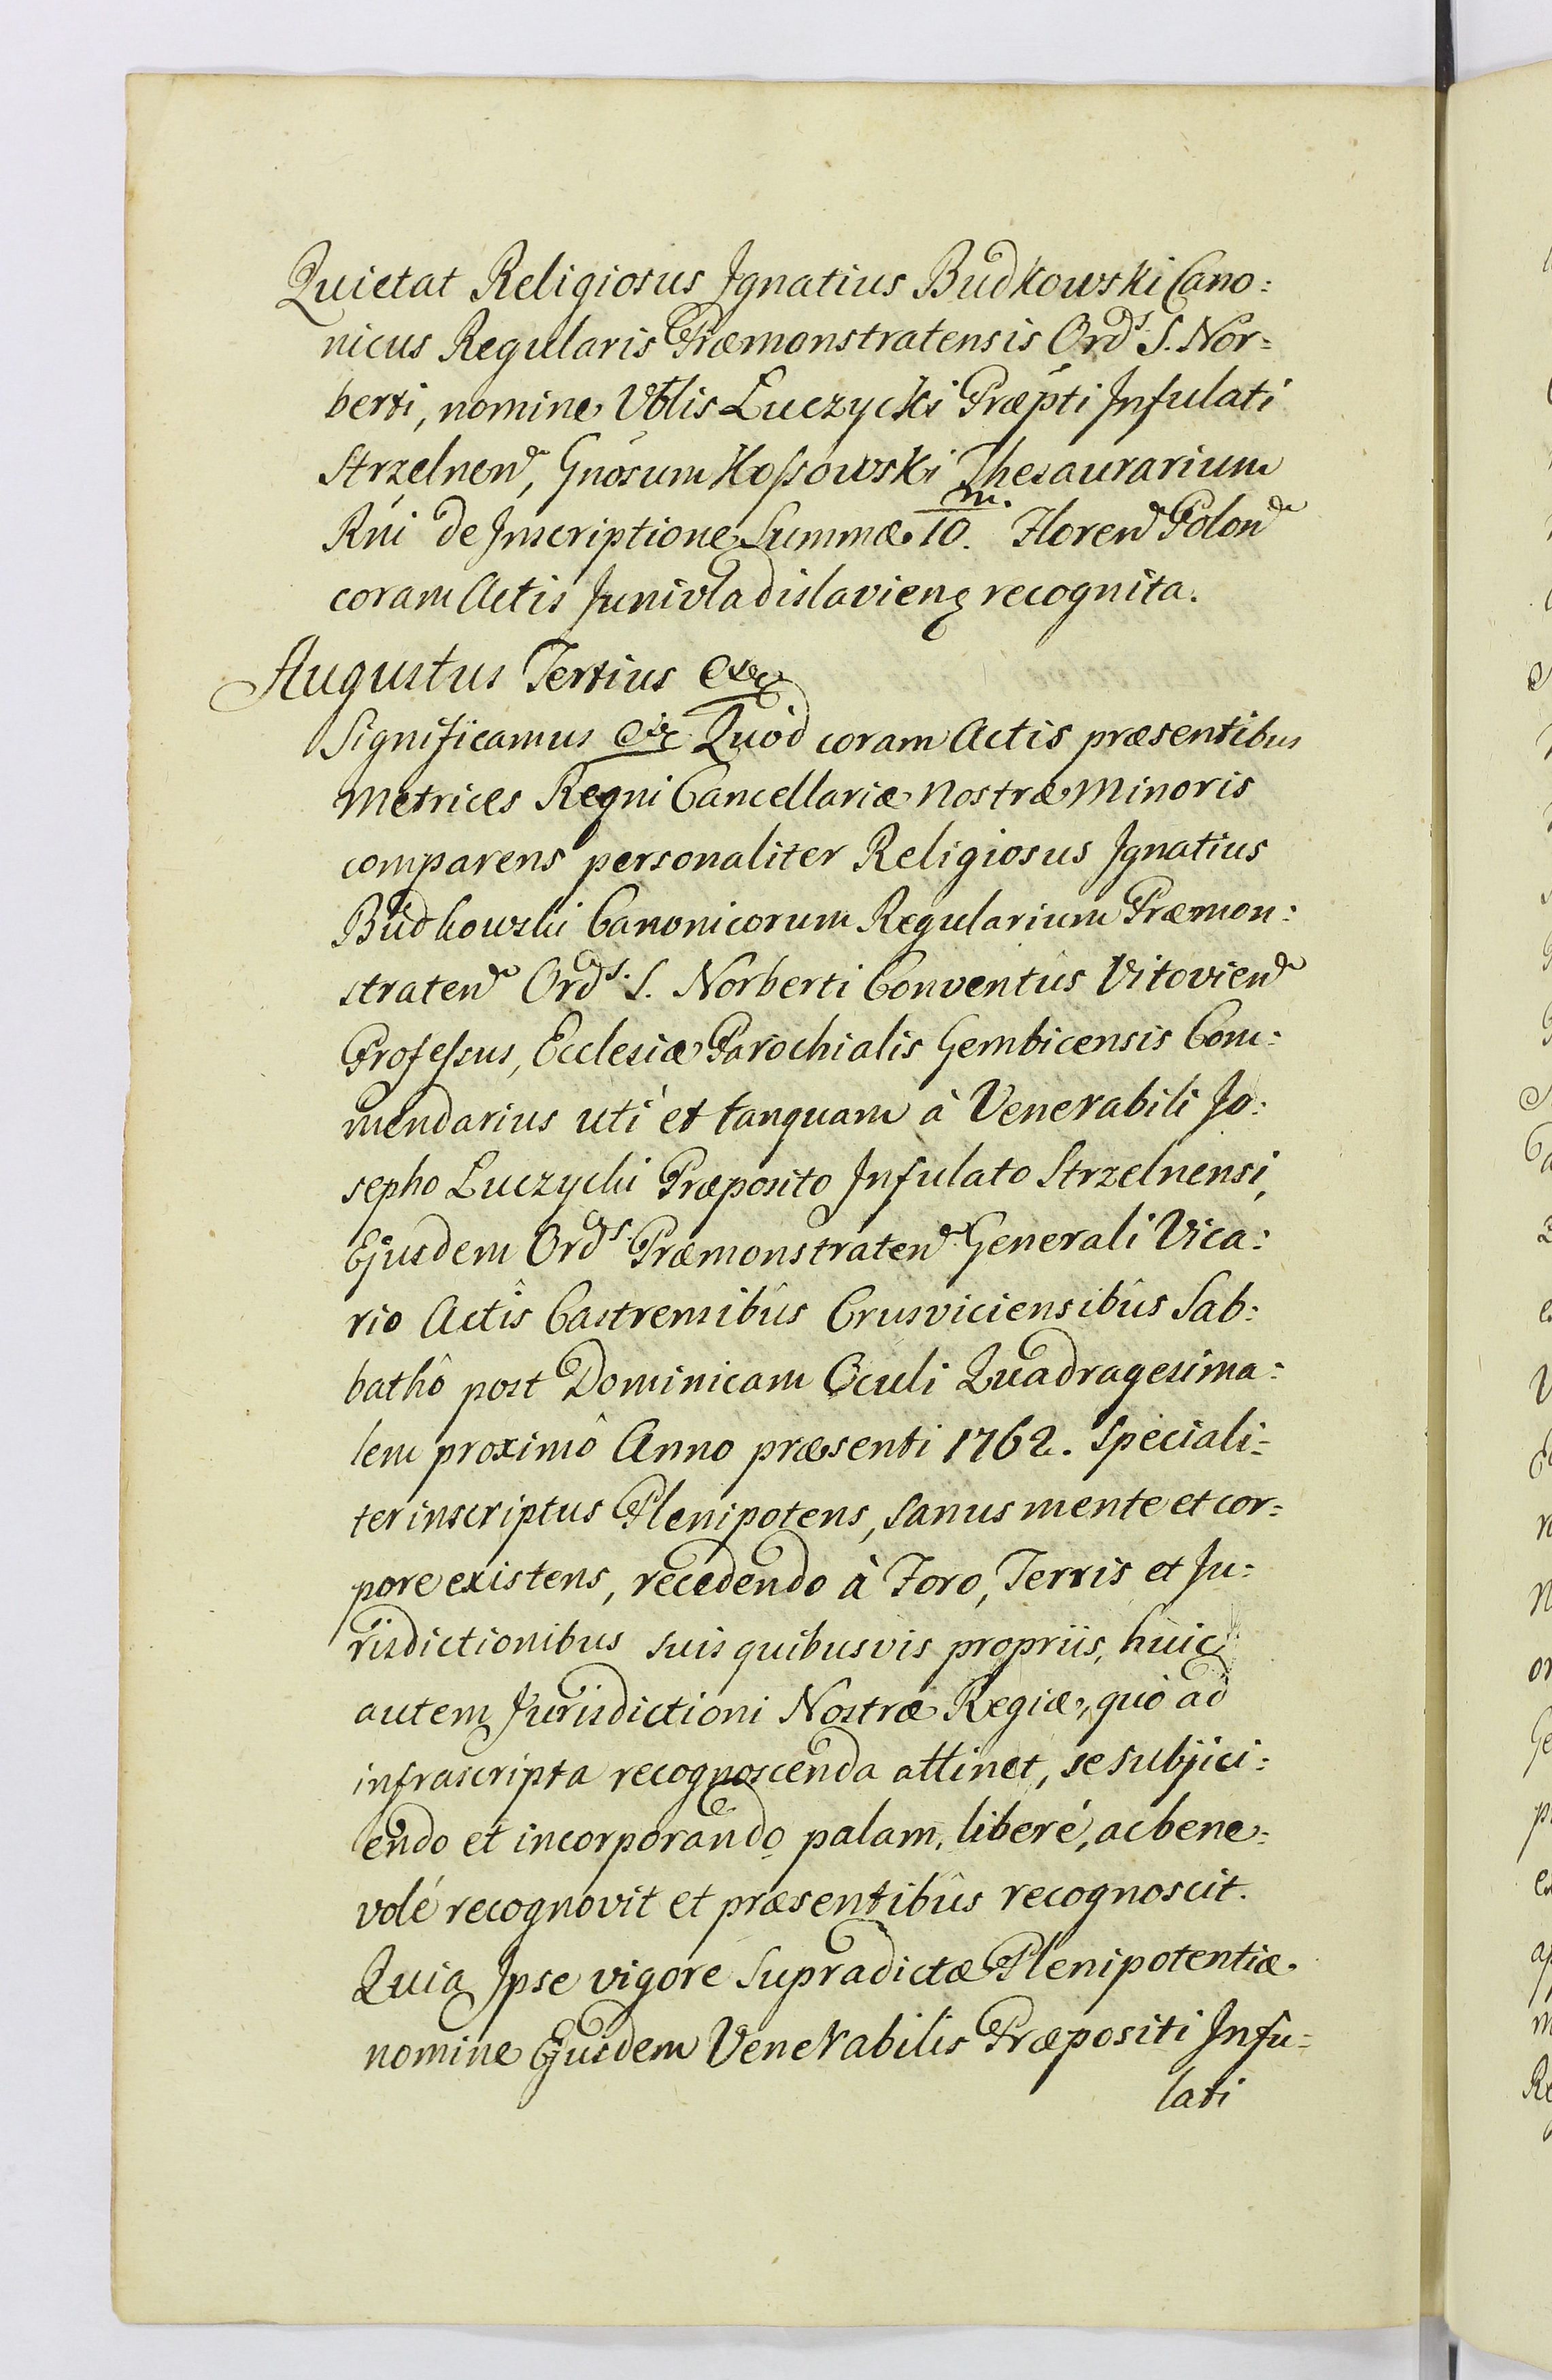 Quietat Religiosus Ignatius Budkowski Cano:
nicus Regularis Præmonstratensis Ord.s S. Nor=
berti, nomine Vblis Łuczycki Præpti Infulati
Strzelnen, Gnosum Kossowski Thesaurarium
Rni de Inscriptione Summæ 10.m Floren Polon
coram Actis Junivladislavien recognita.
Augustus Tertius etc
Significamus etc Quod coram Actis præsentibus
Metrices Regni Cancellariæ Nostræ Minoris
comparens personaliter Religiosus Ignatius
Budkowski Canonicorum Regularium Præmon:
straten Ord.s S. Norberti Conventûs Vitovien
Professus, Ecclesiæ Parochialis Gembicensis Com:
mendarius uti et tanquam à Venerabili Jo:
sepho Łuczycki Præposito Infulato Strzelnensi,
Ejusdem Ord.s Præmonstraten Generali Vica:
rio Actîs Castrensibûs Crusviciensibûs Sab:
bathô post Dominicam Oculi Quadragesima:
lem proximô Anno præsenti 1762. speciali=
ter inscriptus Plenipotens, sanus mente et cor=
pore existens, recedendo à Foro, Terris et Ju=
risdictionibus suis quibusvis propriis, huic
autem Jurisdictioni Nostræ Regiæ, quò ad
infrascripta recognoscenda attinet, se subjici:
endo et incorporando palam, liberé, ac bene=
volé recognovit et præsentibûs recognoscit.
Quia Ipse vigore supradictæ Plenipotentiæ
nomine Ejusdem Venerabilis Præpositi Infu=
lati